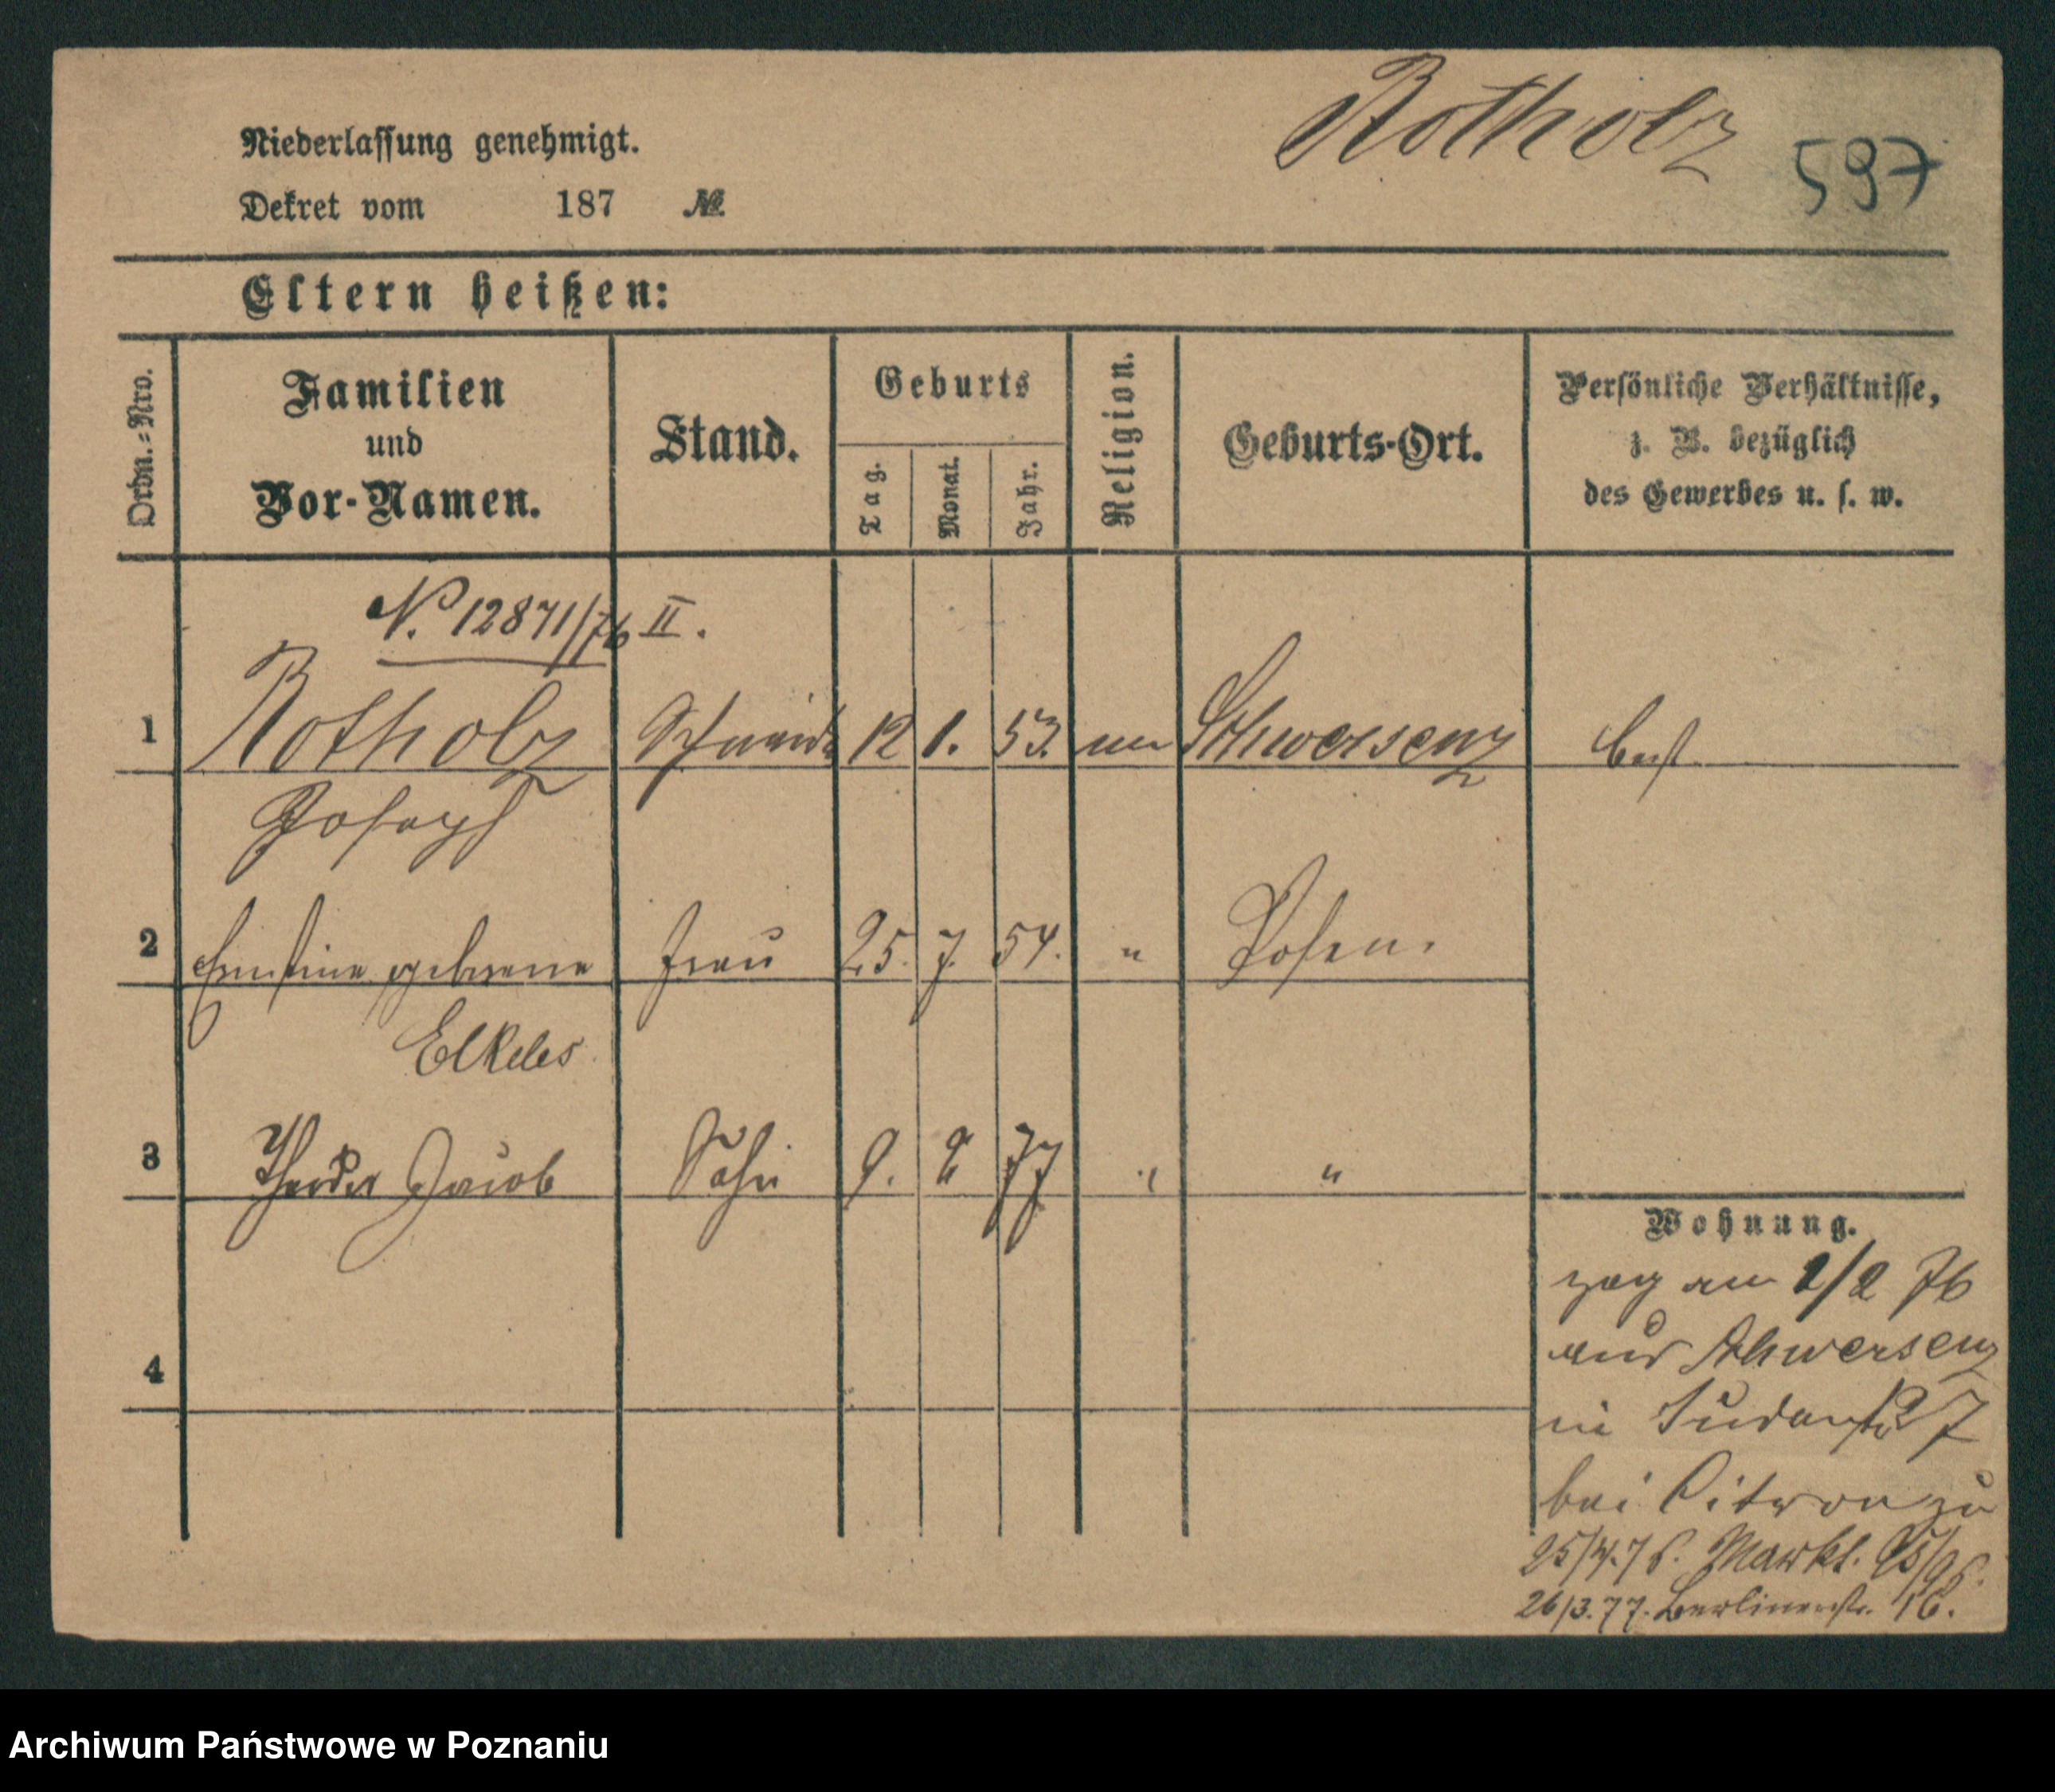 Rotholz 597
Niederlassung genehmigt.
Dekret vom 187 №
Eltern heißen:
Ordn.-Nro.
Familien
und
Vor-Namen.
Stand.
Geburts
Tag.
Monat.
Jahr.
Religion.
Geburts-Ort.
Persönliche Verhältnisse,
z. B. bezüglich
des Gewerbes u. s. w.
N. 12871/76 II.
1 Rotholz Schneider 12 1. 53. Schwersenz
Joseph
2 Ernstine geborene Frau 25. 7. 54. " Posen.
Elkeles
3 Jacob Sohn 9. 2 77 " "
4
Wohnung.
zog am 2/2 76
aus Schwersenz
in Judenstr 7
bei Citron zu
25/4.76. Markt.
26/3.77. Berlinerstr. 16.
Archiwum Państwowe w Poznaniu